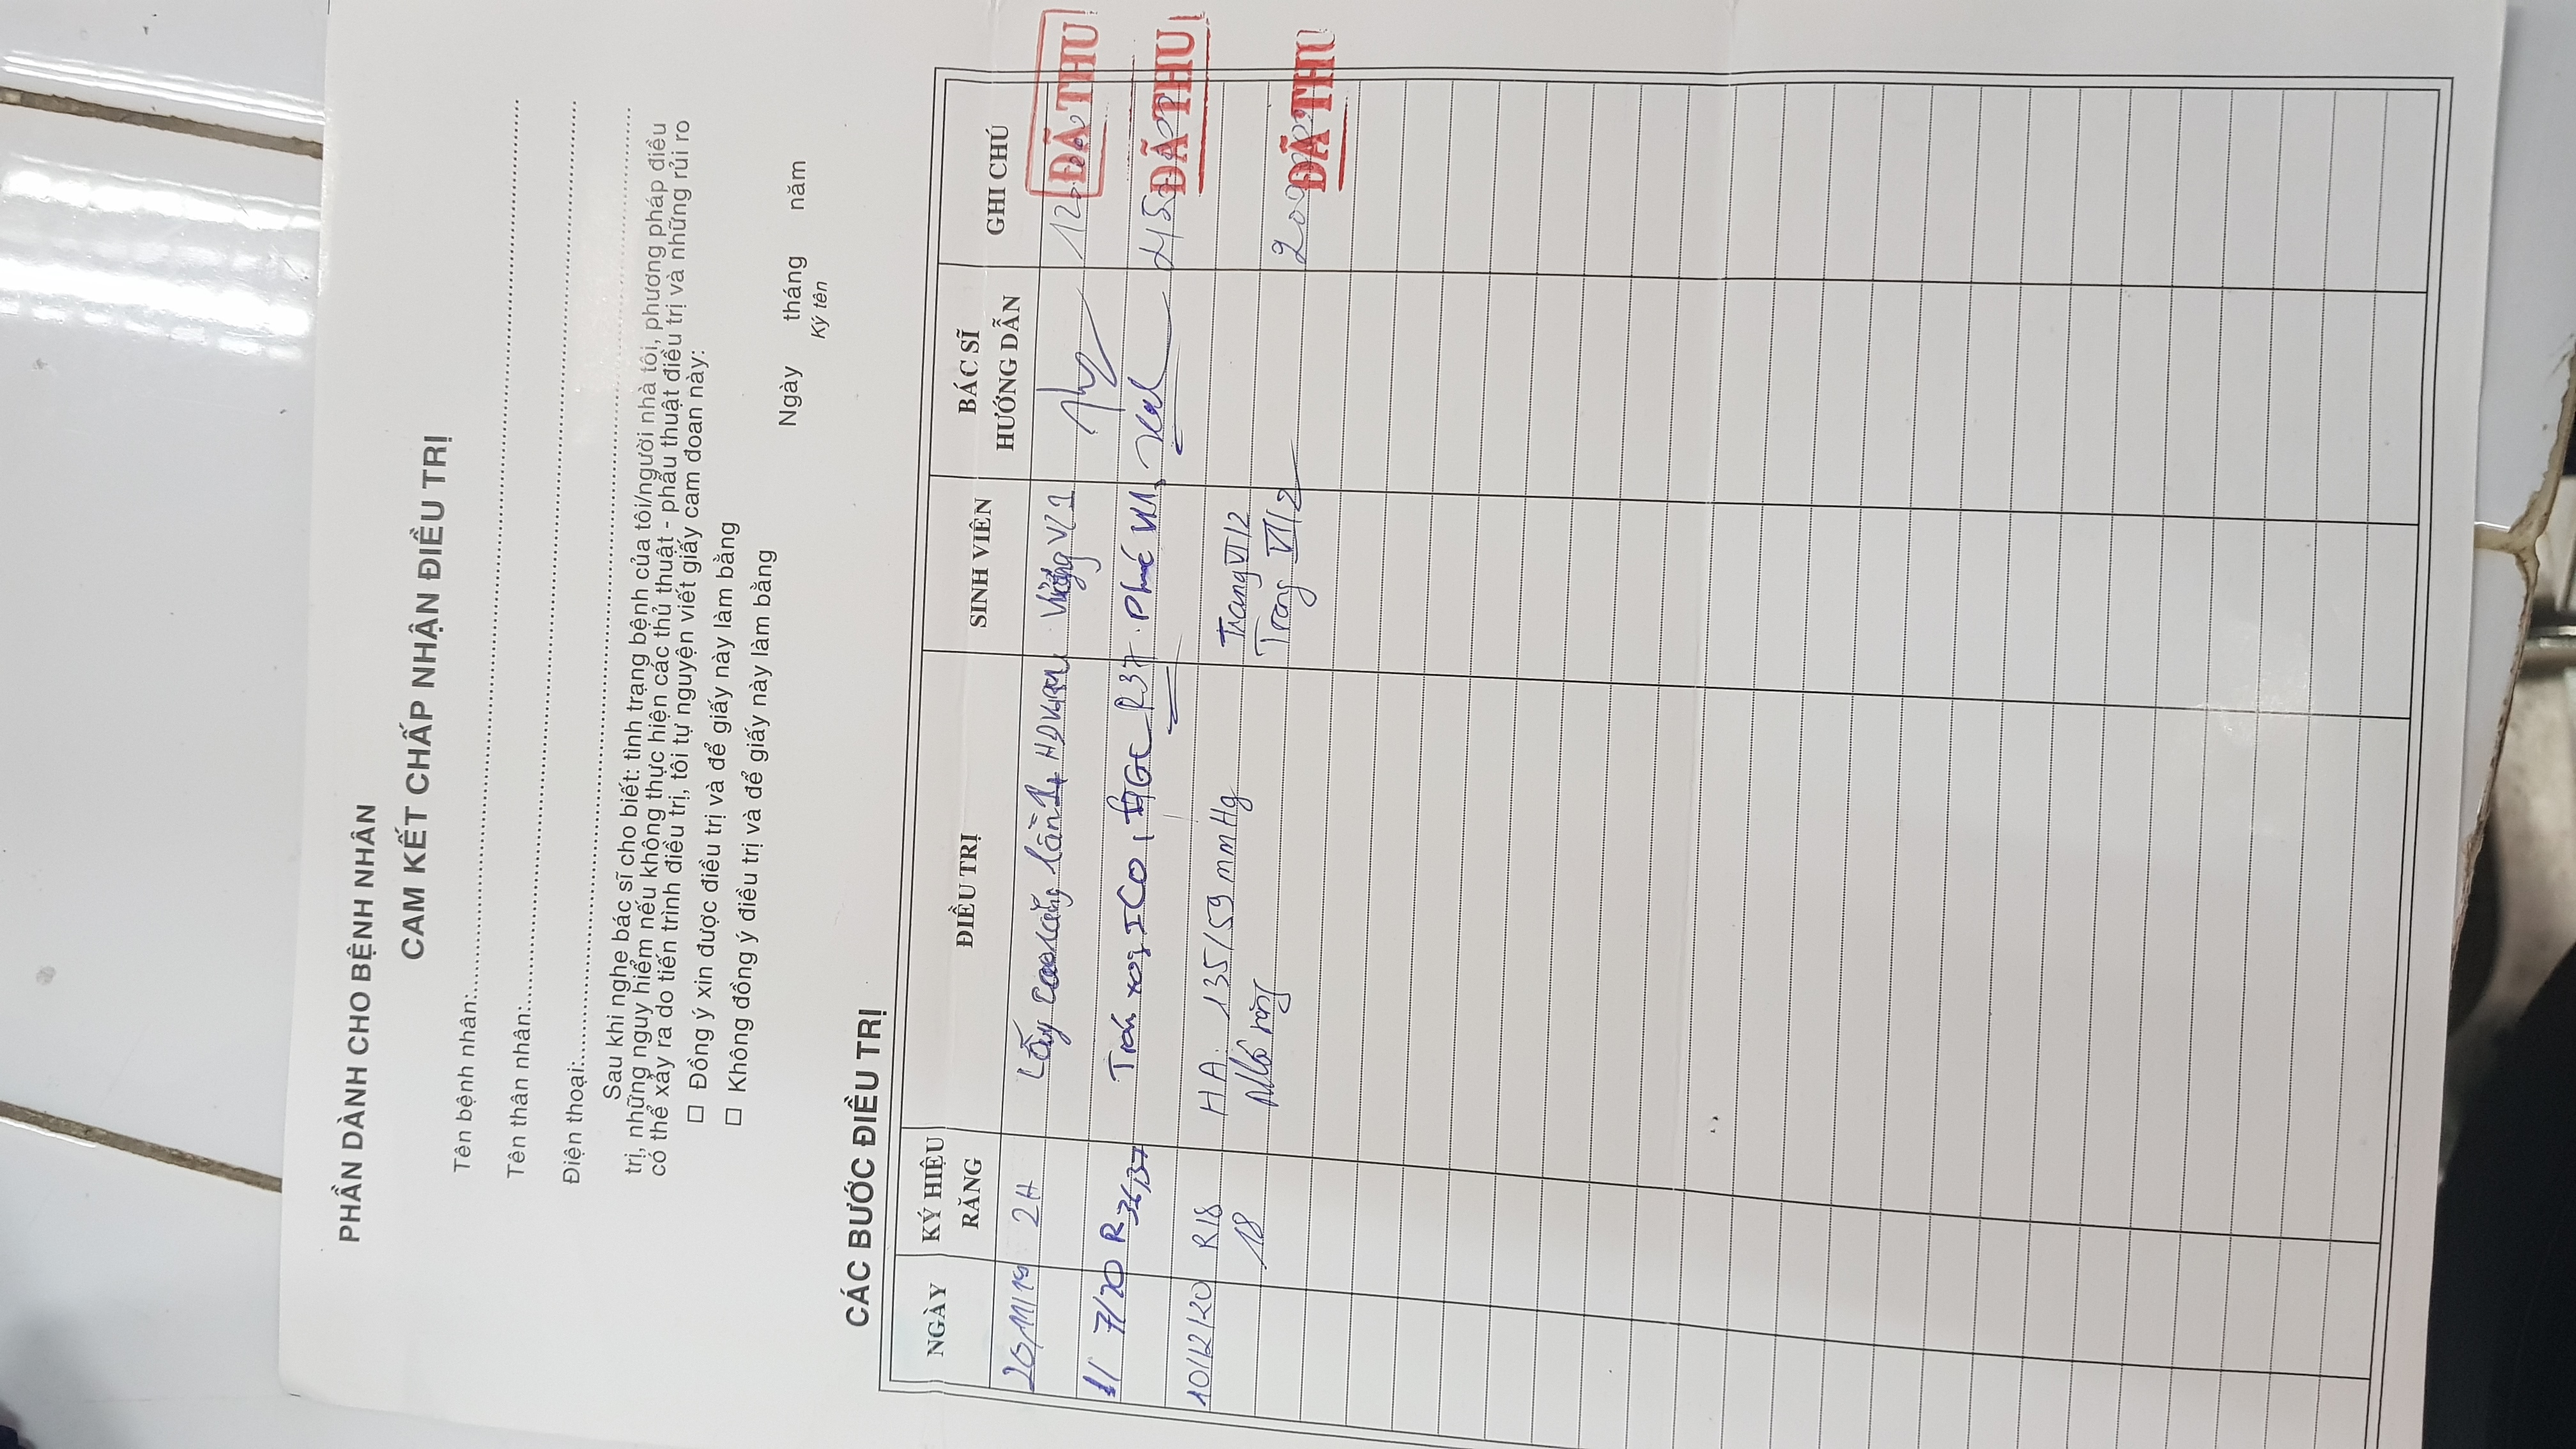 PHẦN DÀNH CHO BỆNH NHÂN
CAM KẾT CHẤP NHẬN ĐIỀU TRỊ
Tên bệnh nhân:
Tên thân nhân:
Điện thoại:
Sau khi nghe bác sĩ cho biết: tình trạng bệnh của tôi/người nhà tôi, phương pháp điều
trị, những nguy hiểm nếu không thực hiện các thủ thuật - phẫu thuật điều trị và những rủi ro
có thể xảy ra do tiến trình điều trị, tôi tự nguyện viết giấy cam đoan này:
Đồng ý xin được điều trị và để giấy này làm bằng
Không đồng ý điều trị và để giấy này làm bằng
Ngày tháng năm
Ký tên
CÁC BƯỚC ĐIỀU TRỊ
NGÀY KÝ HIỆU RĂNG ĐIỀU TRỊ SINH VIÊN BÁC SĨ HƯỚNG DẪN GHI CHÚ
20/11/19 2H Lấy cao răng lần 1 + HDVSRM ĐÃ THU
7/20 R36,37 xong ICO, GC R37 ĐÃ THU
10/12/20 R18 HA. 135/59 mmHg Trang VI/2
18 Nhổ răng Trang VI/2 ĐÃ THU